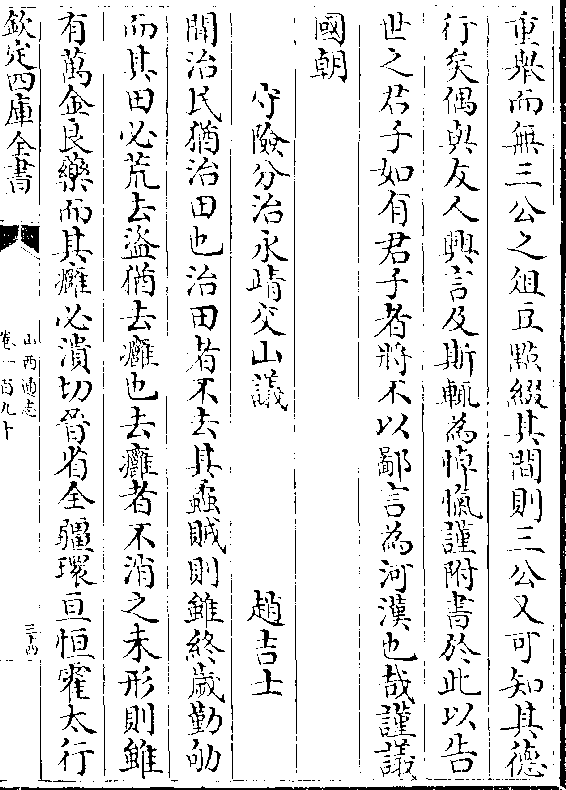 重舉而無三公之俎豆㸃綴其間則三公又可知其德
行矣偶與友人興言及斯輒為悼愾謹附書於此以告
世之君子如有君子者將不以鄙言為河漢也哉謹議
國朝
守險分治永靖交山議 趙吉士
聞治民猶治田也治田者不去其蟊賊則雖終歲勤劬
而其田必荒去盜猶去癰也去癰者不消之未形則雖
有萬金良藥而其癰必潰切晉省全疆環亘恒霍太行
欽定四庫全書
山西通志
卷一百九十
三十四